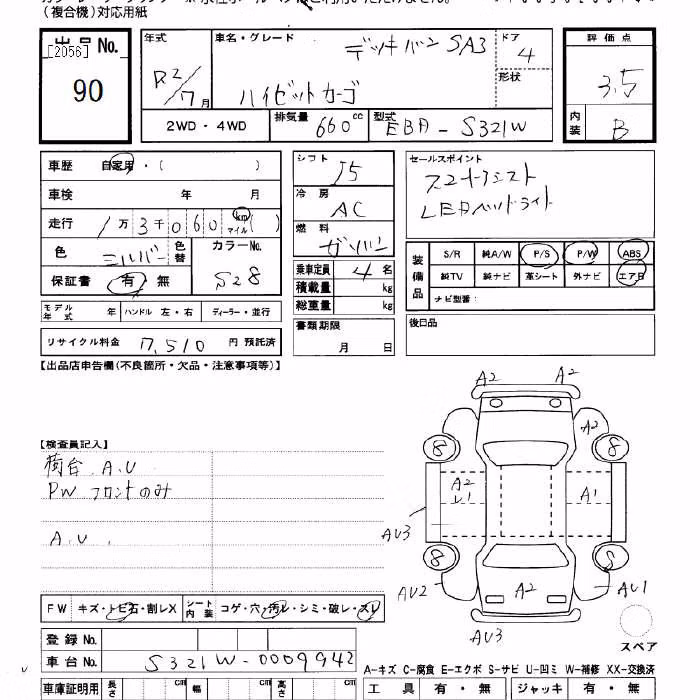 (複合機)対応用紙
出品No.
[2056]
90
年式
R2/7月
車名・グレード
デッキバン SA3
ハイゼットカーゴ
ドア
4
形状
評価点
3.5
内装
B
2WD・4WD
排気量 660 cc
型式 EBA-S321W
車歴 自家用・( )
車検 年 月
走行 1万3千060 km マイル ( )
色 シルバー
色替
カラーNo.
S28
保証書 有 無
モデル年式 年 ハンドル 左・右 ディーラー・並行
リサイクル料金 7,510 円 預託済
シフト I5
冷房 AC
燃料 ガソリン
乗車定員 4 名
積載量 kg
総重量 kg
書類期限
月 日
セールスポイント
スマートアシスト
LEDヘッドライト
装備品
S/R 純A/W P/S P/W ABS
純TV 純ナビ 革シート 外ナビ エアB
ナビ型番:
後日品
【出品店申告欄(不良箇所・欠品・注意事項等)】
【検査員記入】
荷台 A.U
PW フロントのみ
A.U.
A2 A2
A2
8 8
A2
A1
AU3
8 S
AU2 A2 AU1
AU3
スペア
FW キズ・トビ石・割レX
シート内装 コゲ・穴・汚レ・シミ・破レ・スレ
登録No.
車台No. S321W-0009942
A-キズ C-腐食 E-エクボ S-サビ U-凹ミ W-補修 XX-交換済
車庫証明用 長さ cm 幅 cm 高さ cm
工具 有・無 ジャッキ 有・無